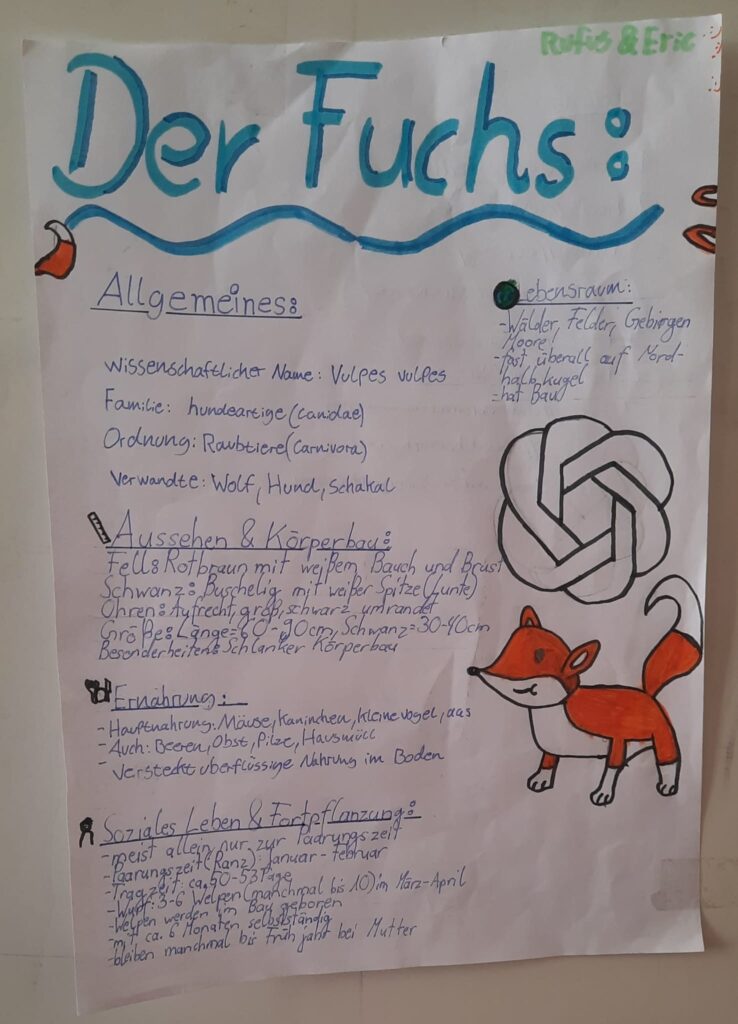 Rufus & Eric
Der Fuchs:
Allgemeines:
Wissenschaftlicher Name: Vulpes vulpes
Familie: hundeartige (Canidae)
Ordnung: Raubtiere (Carnivora)
Verwandte: Wolf, Hund, Schakal
Lebensraum:
-Wälder, Felder, Gebirgen
Moore
-fast überall auf Nord-
halbkugel
-hat Bau
Aussehen & Körperbau:
Fell: Rotbraun mit weißem Bauch und Brust
Schwanz: Buschelig mit weißer Spitze (Lunte)
Ohren: Aufrecht, groß, schwarz umrandet
Größe: Länge=60-90cm, Schwanz=30-40cm
Besonderheiten: Schlanker Körperbau
Ernährung:
- Hauptnahrung: Mäuse, Kaninchen, kleine Vögel, aas
- Auch: Beeren, Obst, Pilze, Hausmüll
- Versteckt überflüssige Nahrung im Boden
Soziales Leben & Fortpflanzung:
-meist allein nur zur Paarungszeit
-Paarungszeit (Ranz): Januar-Februar
-Tragzeit: ca. 50-53 Tage
-Wurf: 3-6 Welpen (manchmal bis 10) im März-April
-Welpen werden im Bau geboren
-mit ca. 6 Monaten selbstständig
-bleiben manchmal bis Frühjahr bei Mutter